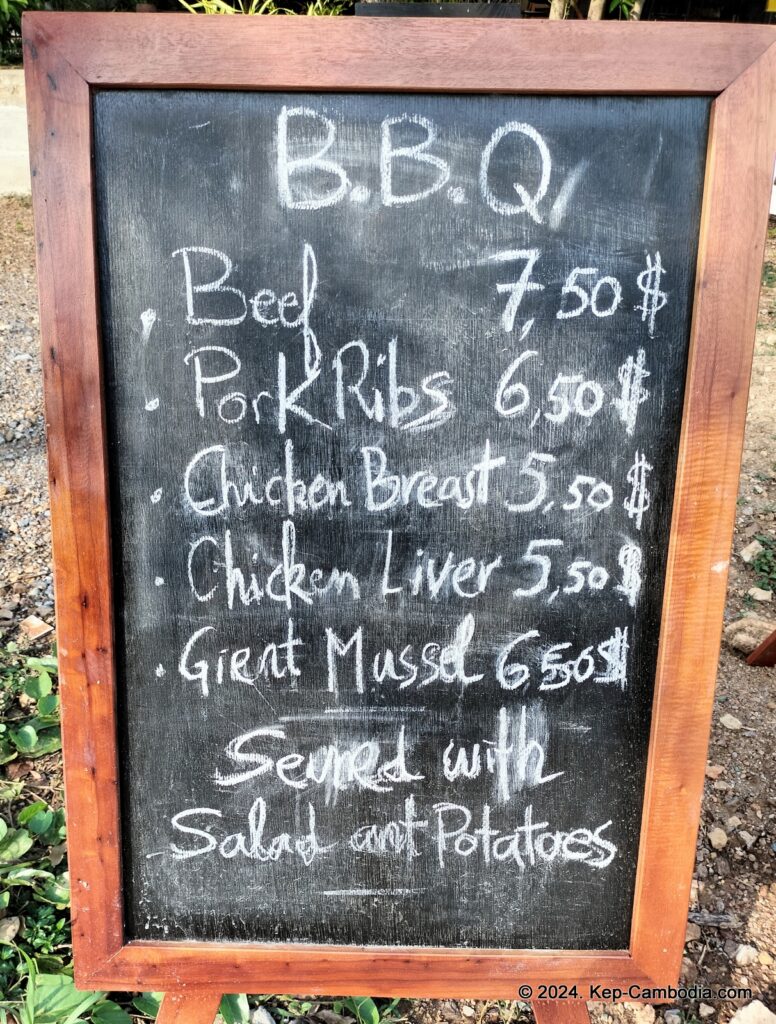 B.B.Q
. Beef 7,50 $
. Pork Ribs 6,50 $
. Chicken Breast 5,50 $
. Chicken Liver 5,50 $
. Gient Mussel 6,50 $
Served with
Salad ant Potatoes
© 2024. Kep-Cambodia.com